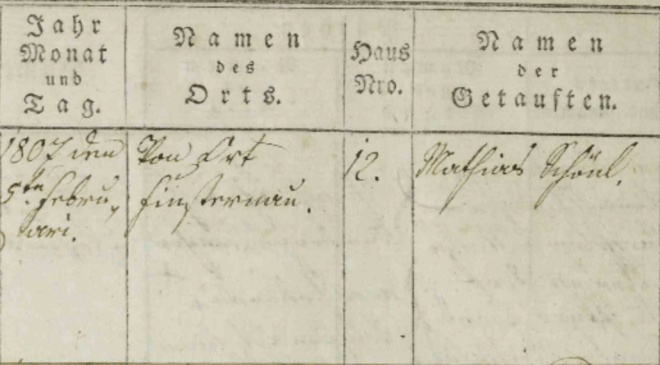 Jahr
Monat
und
Tag.
Namen
des
Orts.
Haus
Nro.
Namen
der
Getauften.
1807 den
5ten Febru-
ari.
Von Ort
Finsternau.
12.
Mathias Schönl.